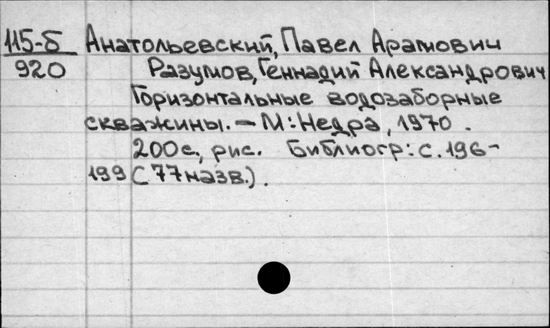 115-б Анатольевский, Павел Арамович
920 Разумов, Геннадий Александрович
Горизонтальные водозаборные
скважины. - М: Недра, 1970.
200с, рис. Библиогр: с. 196-
199 (77 назв.).